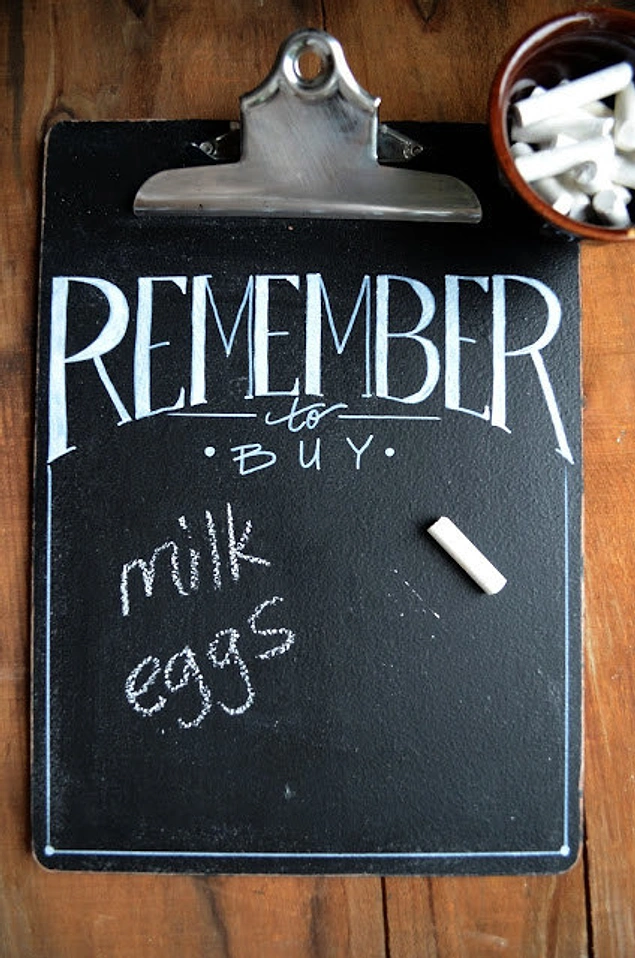 REMEMBER
to
BUY
milk
eggs